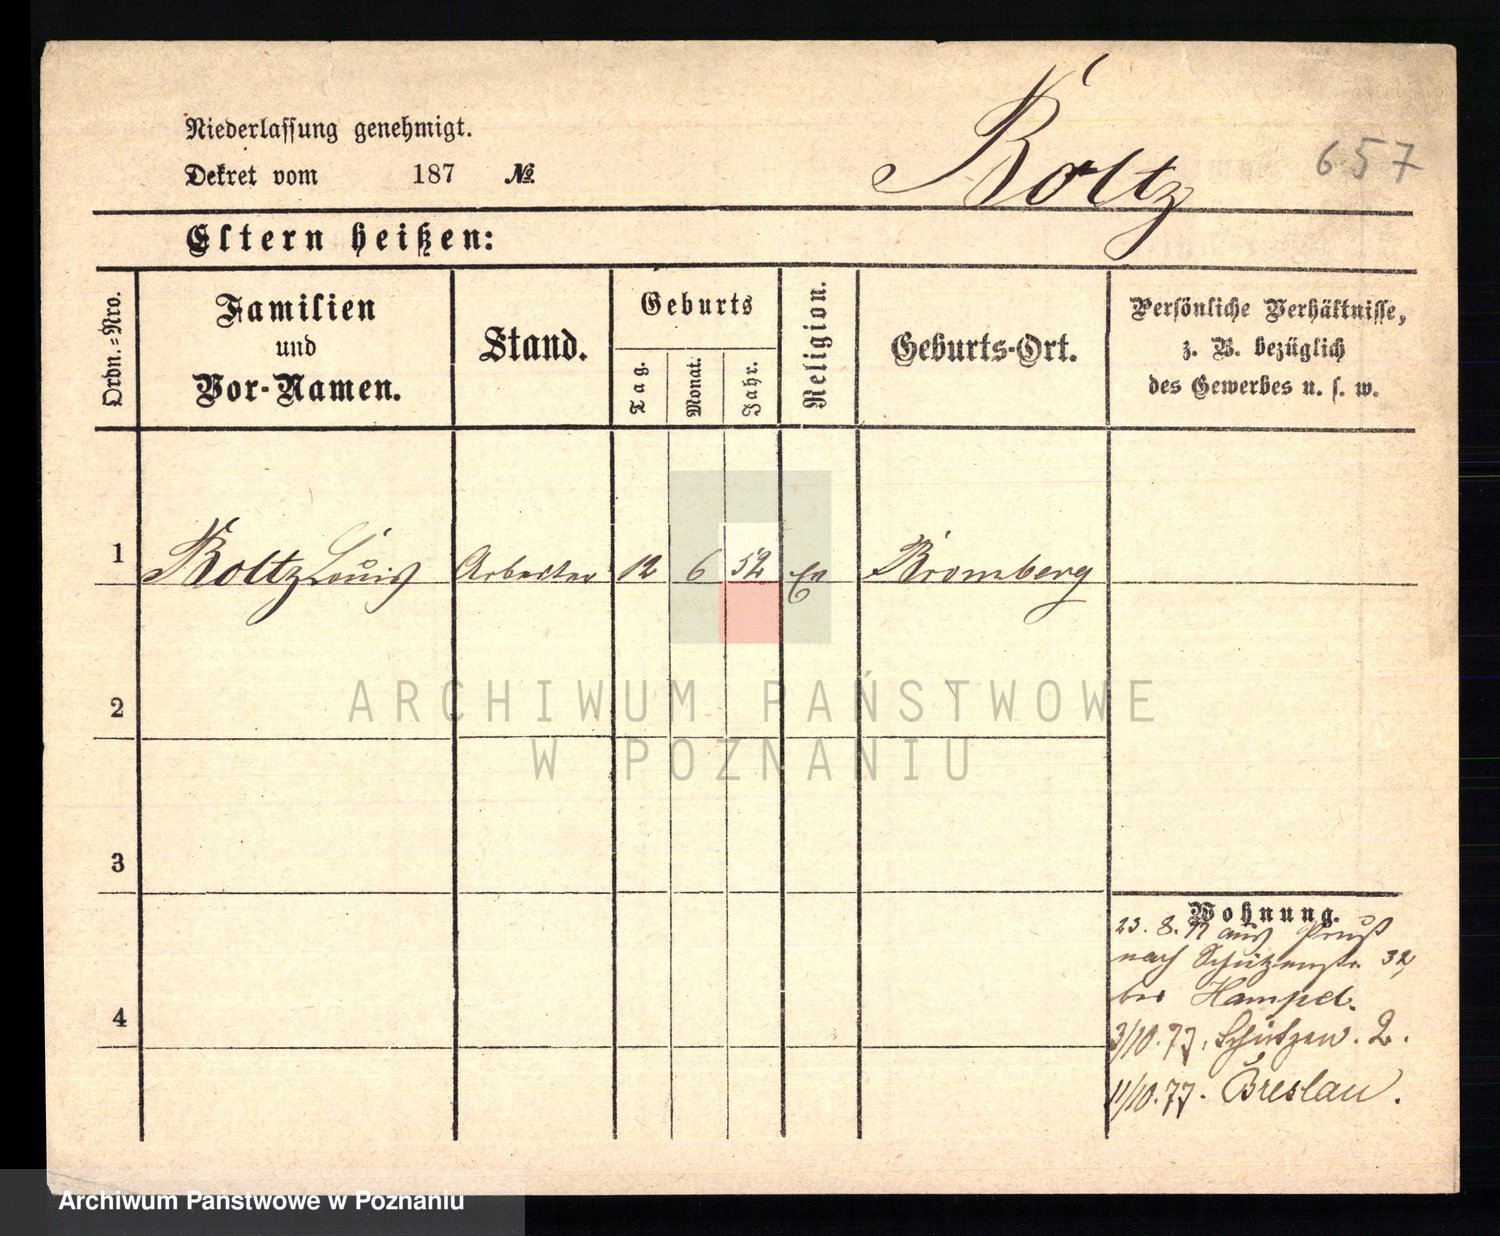 Niederlassung genehmigt.
Dekret vom 187 №
Boltz
657
Eltern heißen:
Ordn.-Nro.
Familien
und
Vor-Namen.
Stand.
Geburts
Tag.
Monat.
Jahr.
Religion.
Geburts-Ort.
Persönliche Verhältnisse,
z. B. bezüglich
des Gewerbes u. s. w.
1 Boltz Louis Arbeiter 12 6 52 Ev Bromberg
ARCHIWUM PAŃSTWOWE
W POZNANIU
2
3
4
Wohnung.
23. 8. aus
nach Schützenstr. 32,
bei Hampel.
3/10. 77. Schützen. 2.
11/10. 77. Breslau.
Archiwum Państwowe w Poznaniu